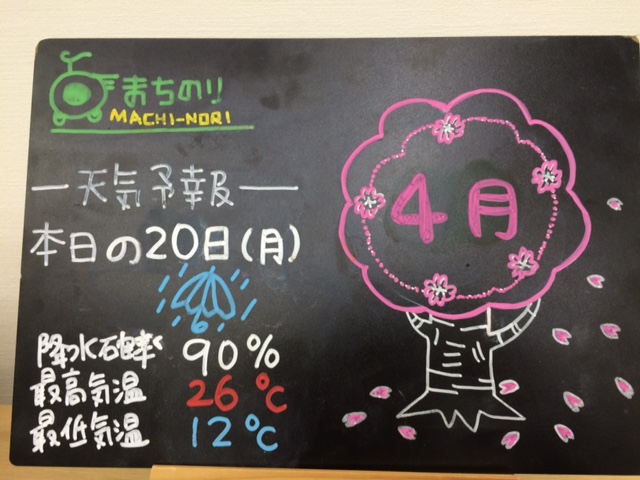 まちのり
MACHI-NORI
ー天気予報ー
本日の20日(月)
降水確率 90%
最高気温 26℃
最低気温 12℃
4月